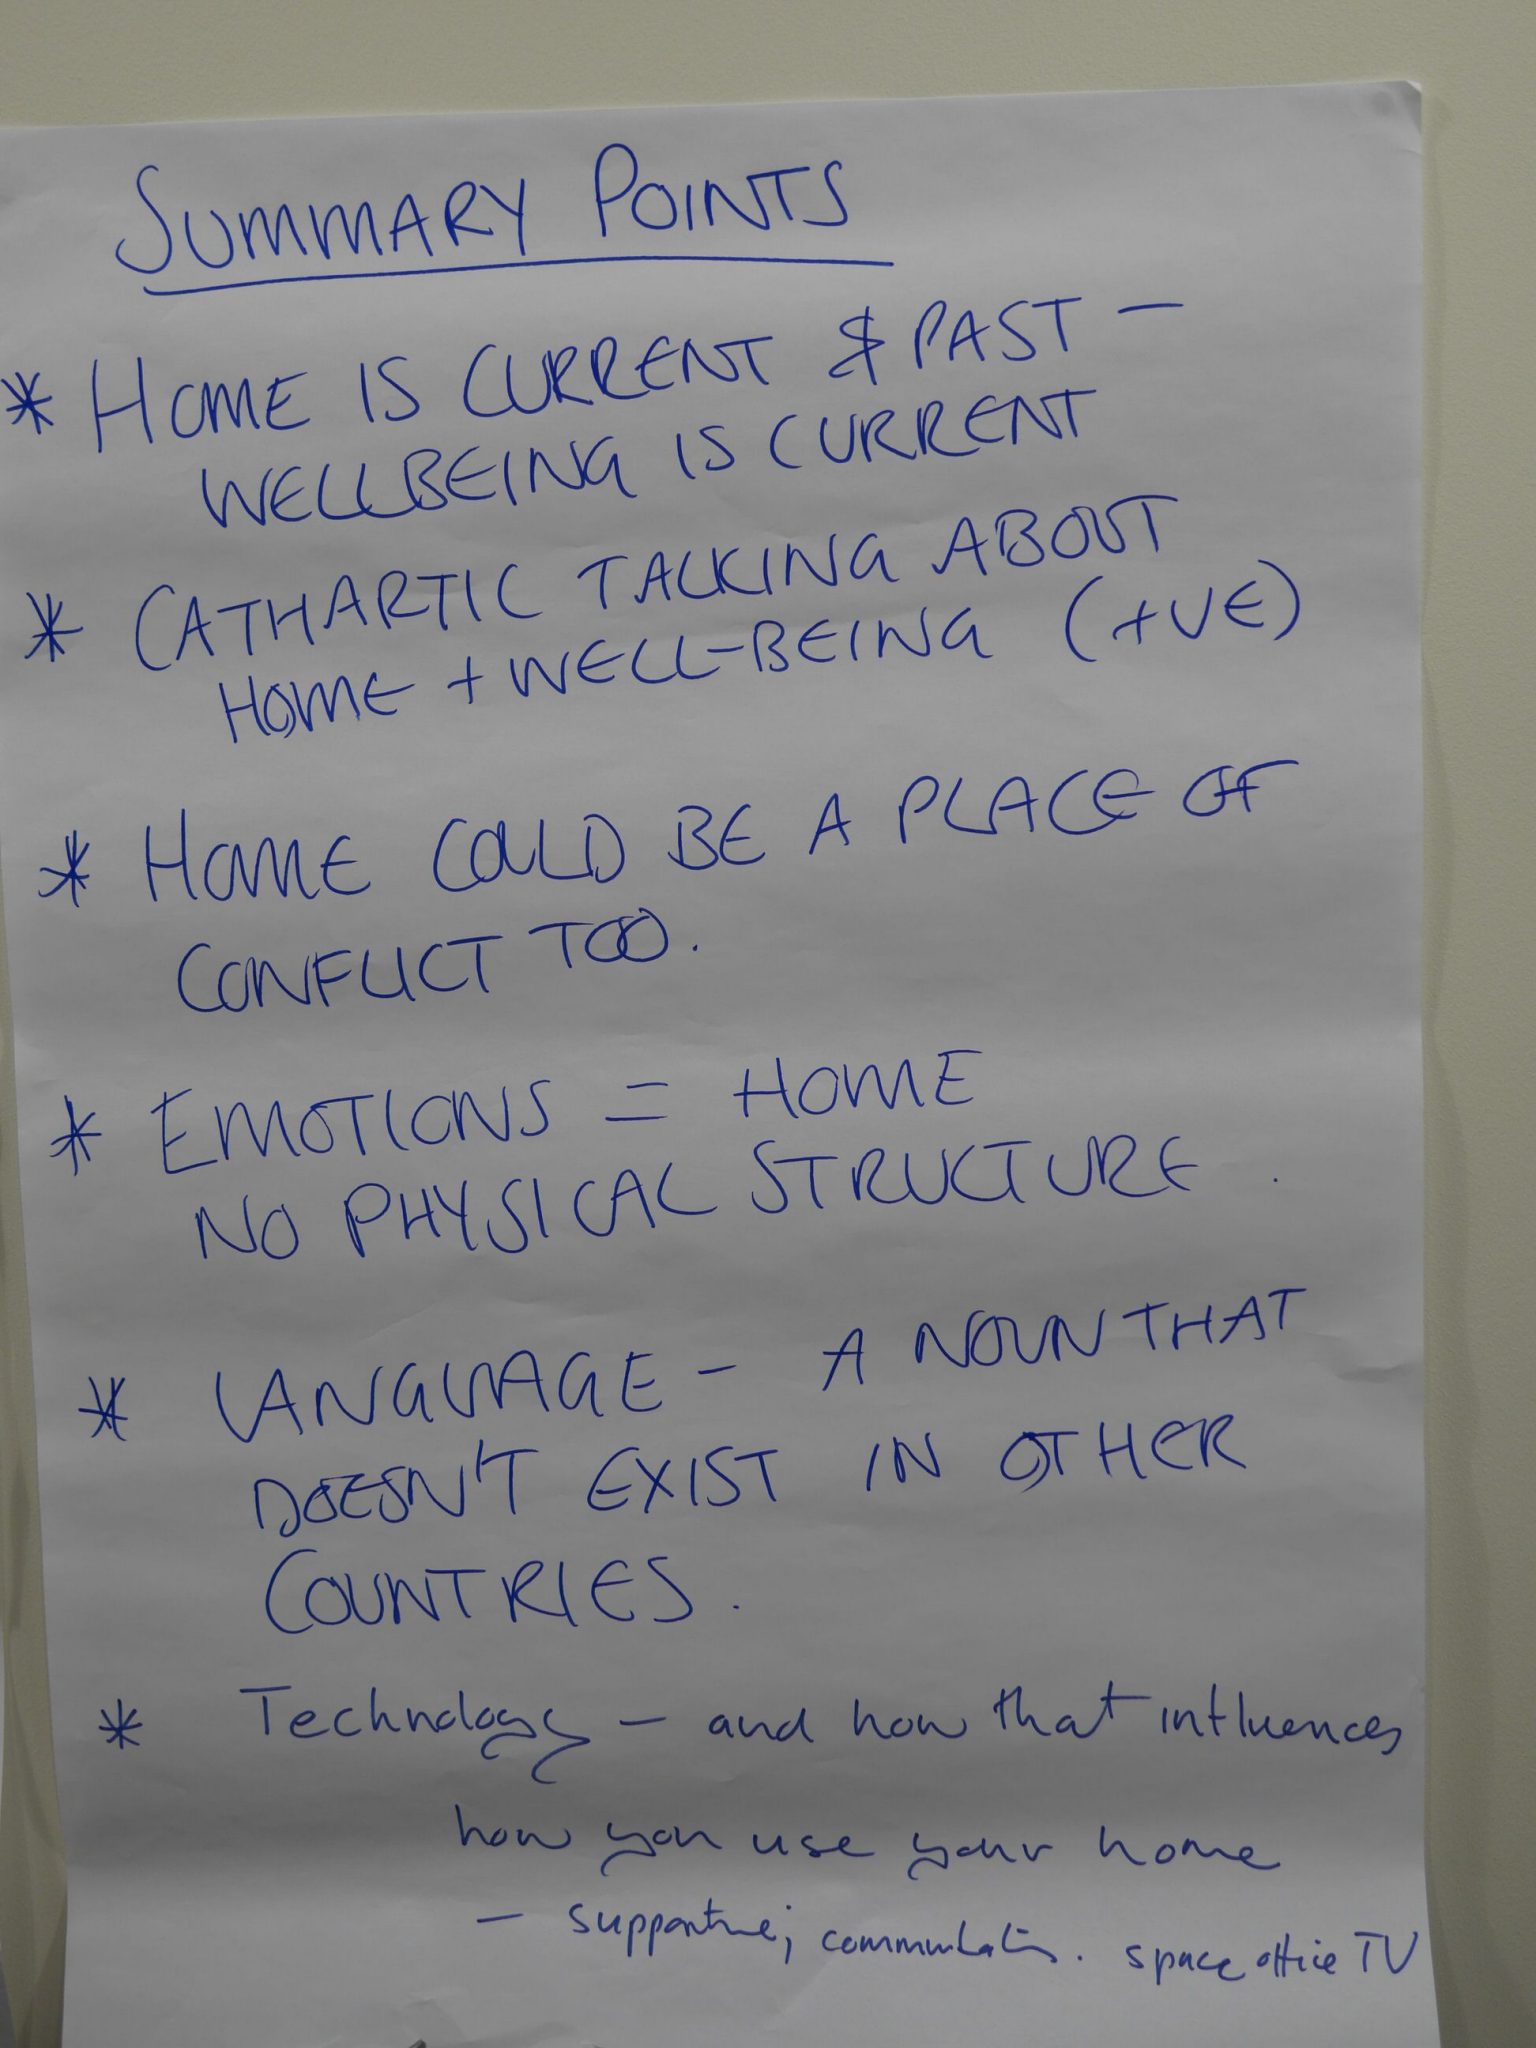 SUMMARY POINTS
* HOME IS CURRENT & PAST -
WELLBEING IS CURRENT
* CATHARTIC TALKING ABOUT
HOME + WELL-BEING (+VE)
* HOME COULD BE A PLACE OF
CONFLICT TOO.
* EMOTIONS = HOME
NO PHYSICAL STRUCTURE.
* LANGUAGE - A NOUN THAT
DOESN'T EXIST IN OTHER
COUNTRIES.
* Technology - and how that influences
how you use your home
- supportive; space office TV